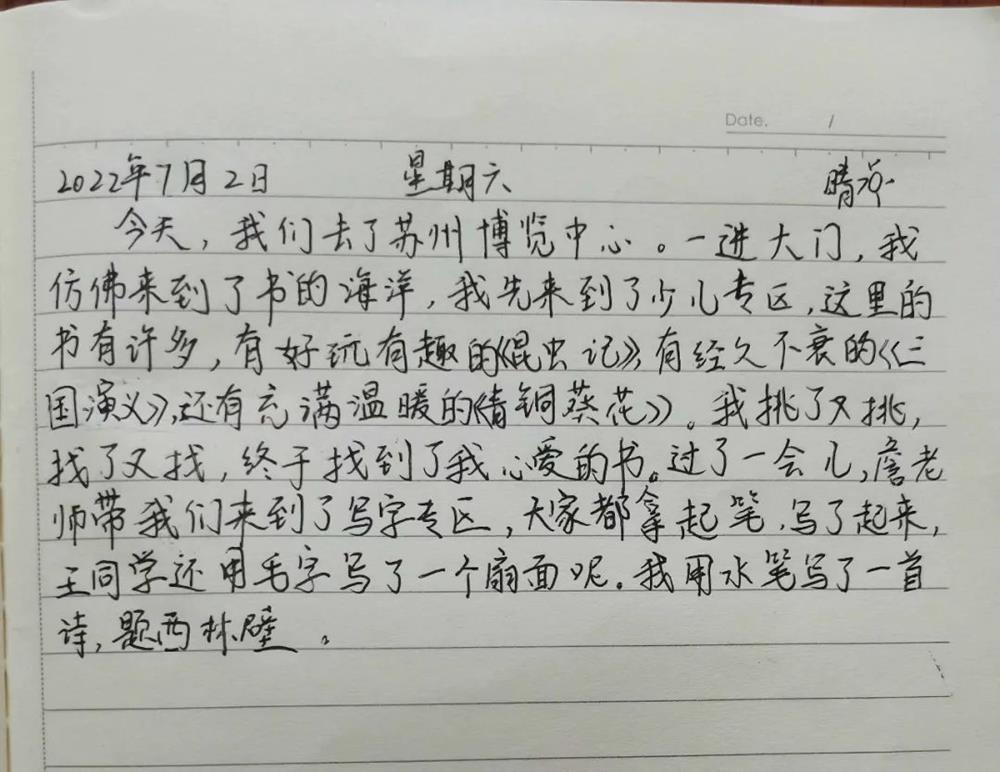 Date. /
2022年7月2日 星期六 晴
今天，我们去了苏州博览中心。一进大门，我
仿佛来到了书的海洋，我先来到了少儿专区，这里的
书有许多，有好玩有趣的《昆虫记》，有经久不衰的《三
国演义》，还有充满温暖的《青铜葵花》。我挑了又挑，
找了又找，终于找到了我心爱的书。过了一会儿，詹老
师带我们来到了写字专区，大家都拿起笔，写了起来，
王同学还用毛字写了一个扇面呢。我用水笔写了一首
诗，题西林壁。